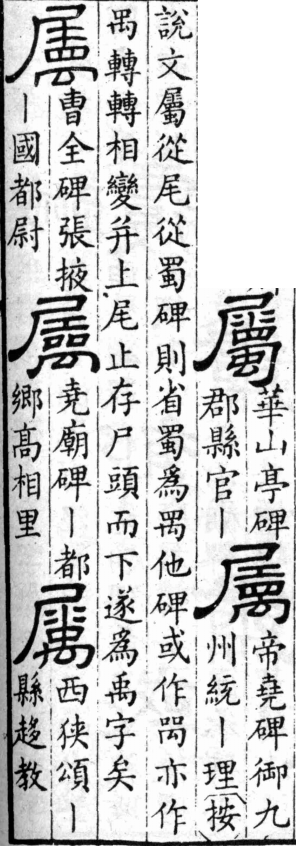 屬華山亭碑
郡縣官丨
属帝堯碑御九
州統丨理按
說文屬從尾從蜀碑則省蜀為禺他碑或作咼亦作
禺轉轉相變并上尾止存尸頭而下遂為禹字矣
曹全碑張掖
丨國都尉
属堯廟碑丨都
鄉高相里
属西狹頌丨
縣趍教